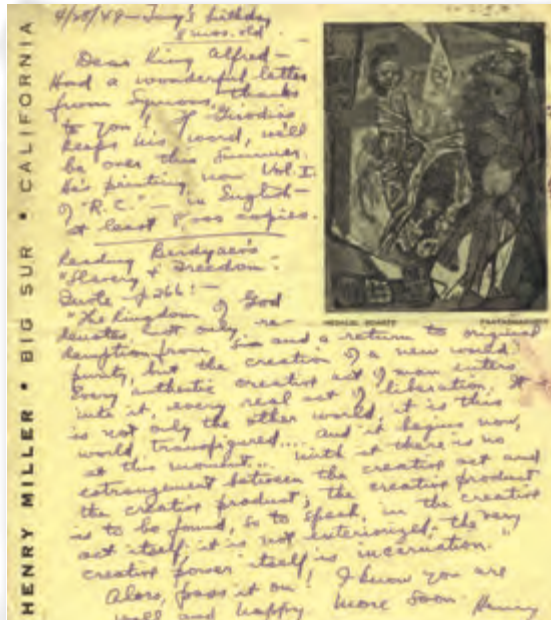 HENRY MILLER • BIG SUR • CALIFORNIA
4/28/49 — Tony's birthday
8 mos. old.
Dear King Alfred —
Had a wonderful letter
from thanks
to you! If Girodias
keeps his word, we'll
be over this Summer.
He's printing now Vol. I.
of "R.C." — in English —
at least 8,000 copies.
Reading Berdyaev's
"Slavery & Freedom."
Quote — p 266: —
"The Kingdom of God
denotes not only re-
demption from sin and a return to original
purity, but the creation of a new world.
Every authentic creative act of man enters
into it, every real act of liberation. It
is not only the other world, it is this
world transfigured.... And it begins now,
at this moment... With it there is no
estrangement between the creative act and
the creative product; the creative product
is to be found, so to speak, in the creative
act itself; it is not exteriorized; the very
creative power itself is incarnation."
Alors, pass it on! I know you are
well and happy. More soon. Henry